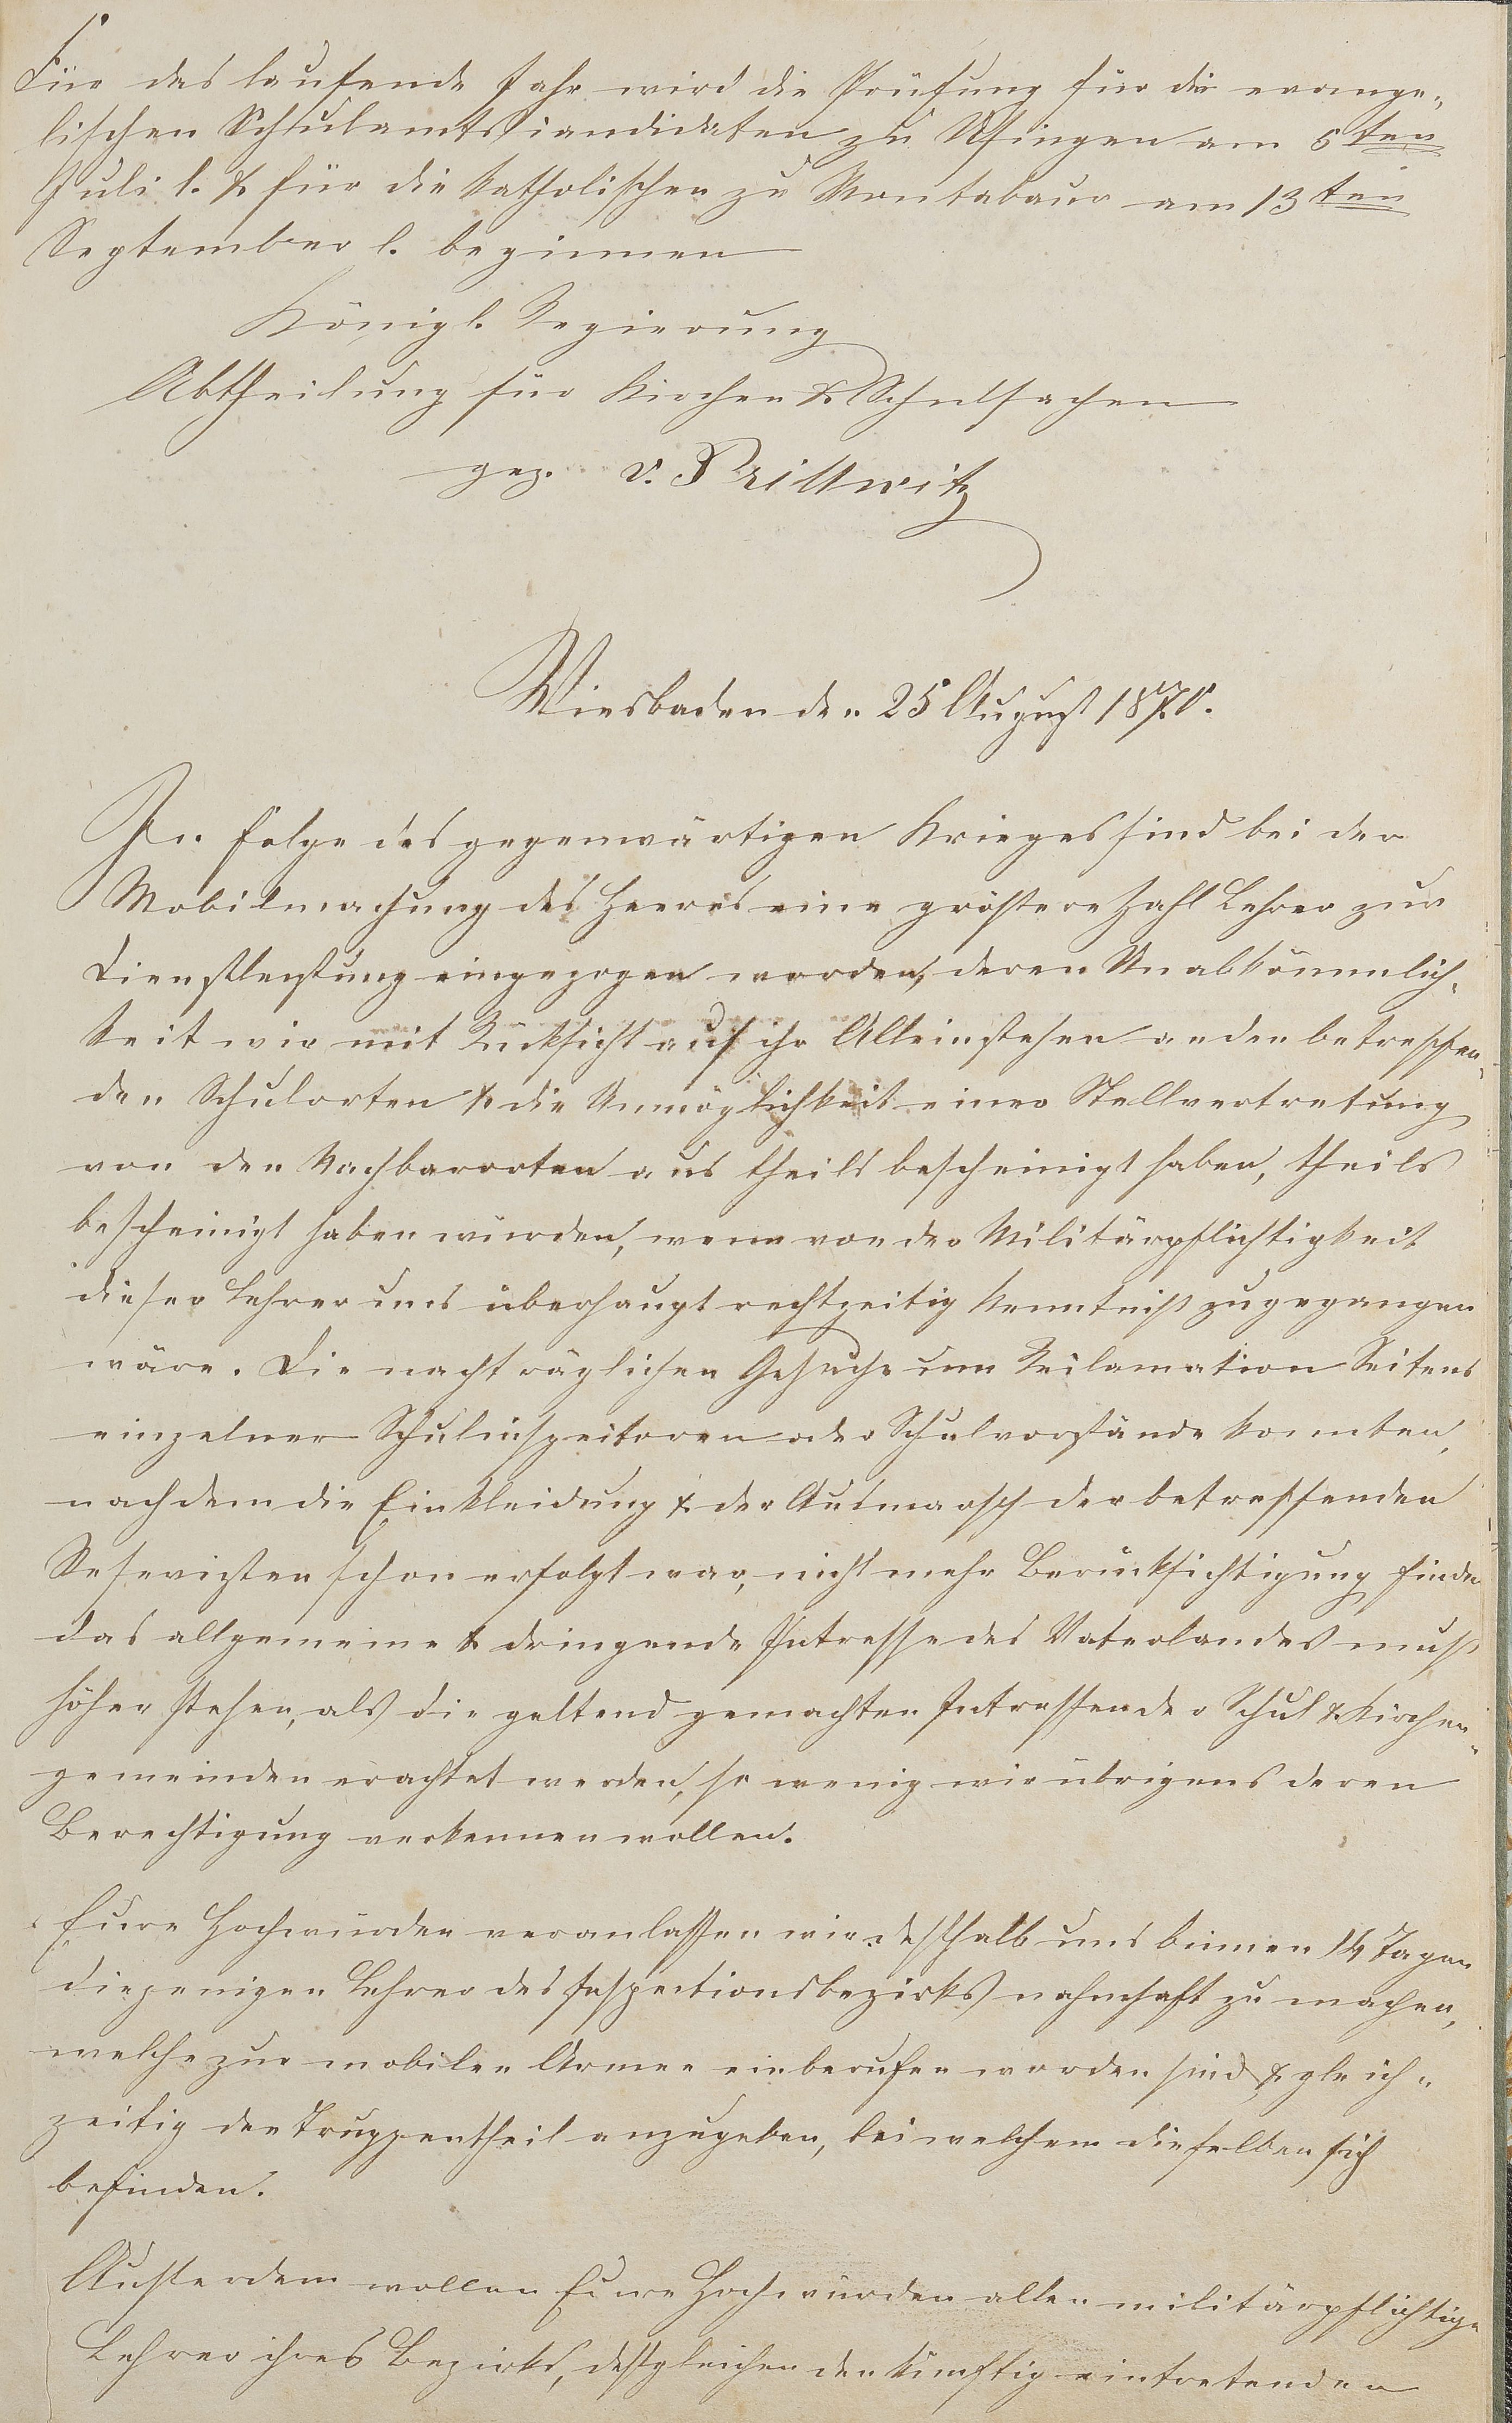 Für das laufende Jahr wird die Prüfung für die evange-
lischen Schulamtscandidaten zu Usingen am 5ten
Juli l. & für die katholischen zu Montabaur am 13ten
September l. beginnen
Königl. Regierung
Abtheilung für Kirchen & Schulsachen
gez. v. Prittwitz
Wiesbaden den 25 August 1870.
In Folge des gegenwärtigen Krieges sind bei der
Mobilmachung des Heeres eine größere Zahl Lehrer zur
Dienstleistung eingezogen worden, deren Unabkömmlich-
keit wir mit Rücksicht auf ihr Alleinstehen an den betreffen-
den Schulorten & die Unmöglichkeit einer Stellvertretung
von den Nachbarorten aus theils bescheinigt haben, theils
bescheinigt haben würden, wenn von der Militärpflichtigkeit
dieser Lehrer uns überhaupt rechtzeitig Kenntniß zugegangen
wäre. Die nachträglichen Gesuche um Reclamation Seitens
einzelner Schulinspectoren oder Schulvorstände konnten,
nachdem die Einkleidung & der Ausmarsch der betreffenden
Reservisten schon erfolgt war, nicht mehr Berücksichtigung finden
das allgemeine & dringende Intresse des Vaterlandes muß
höher stehen, als die geltend gemachten Intressen der Schul & Kirchen-
gemeinden erachtet werden, so wenig wir übrigens deren
Berechtigung verkennen wollen.
Eure Hochwürden veranlassen wir deßhalb uns binnen 14 Tagen
diejenigen Lehrer des Inspectionsbezirks namhaft zu machen,
welche zur mobilen Armee einberufen worden sind, & gleich-
zeitig den Truppentheil anzugeben, bei welchem dieselben sich
befinden.
Außerdem wollen Eure Hochwürden allen militärpflichtigen
Lehrer ihres Bezirks, deßgleichen den künftig eintretenden